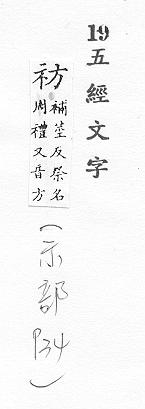 19五經文字
祊
補莖反祭名
周禮又音方
(示部
P34)